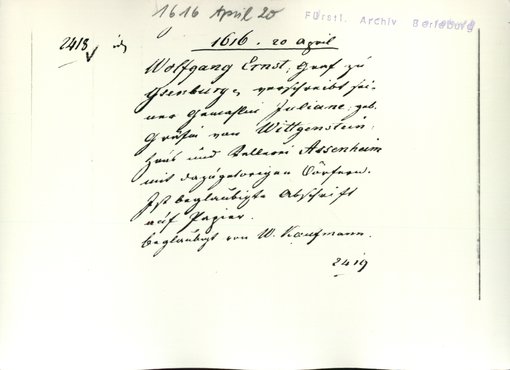 1616 April 20
Fürstl. Archiv Berleburg
2418
1616. 20 April
Wolfgang Ernst, Graf zu
Ysenburg, verschreibt sei-
ner Gemahlin Juliane, geb.
Gräfin von Wittgenstein,
Haus und Kellerei Assenheim
mit dazugehorigen Dörfern.
Ist beglaubigte Abschrift
auf Papier.
beglaubigt von W. Kaufmann.
2419